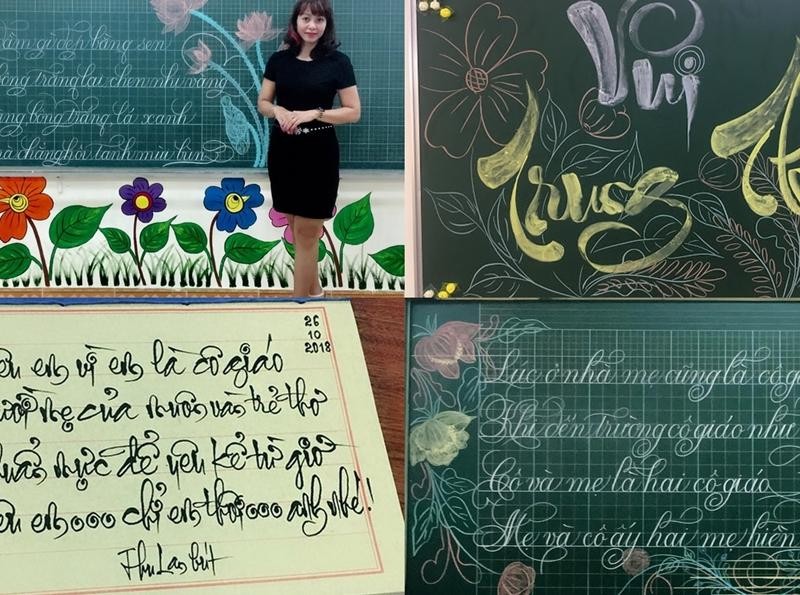 ầm gì đẹp bằng sen
bông trắng lại chen nhị vàng
àng bông trắng lá xanh
chẳng hôi tanh mùi bùn
Vui
Trung Th
26
10
2018
êu em vì em là cô giáo
ười mẹ của muôn vàn trẻ thơ
uẩn mực để yêu kể từ giờ
êu em... chỉ em thôi... anh nhé!
Thu Lan bút
Lúc ở nhà mẹ cũng là cô gi
Khi đến trường cô giáo như
Cô và mẹ là hai cô giáo
Mẹ và cô ấy hai mẹ hiền